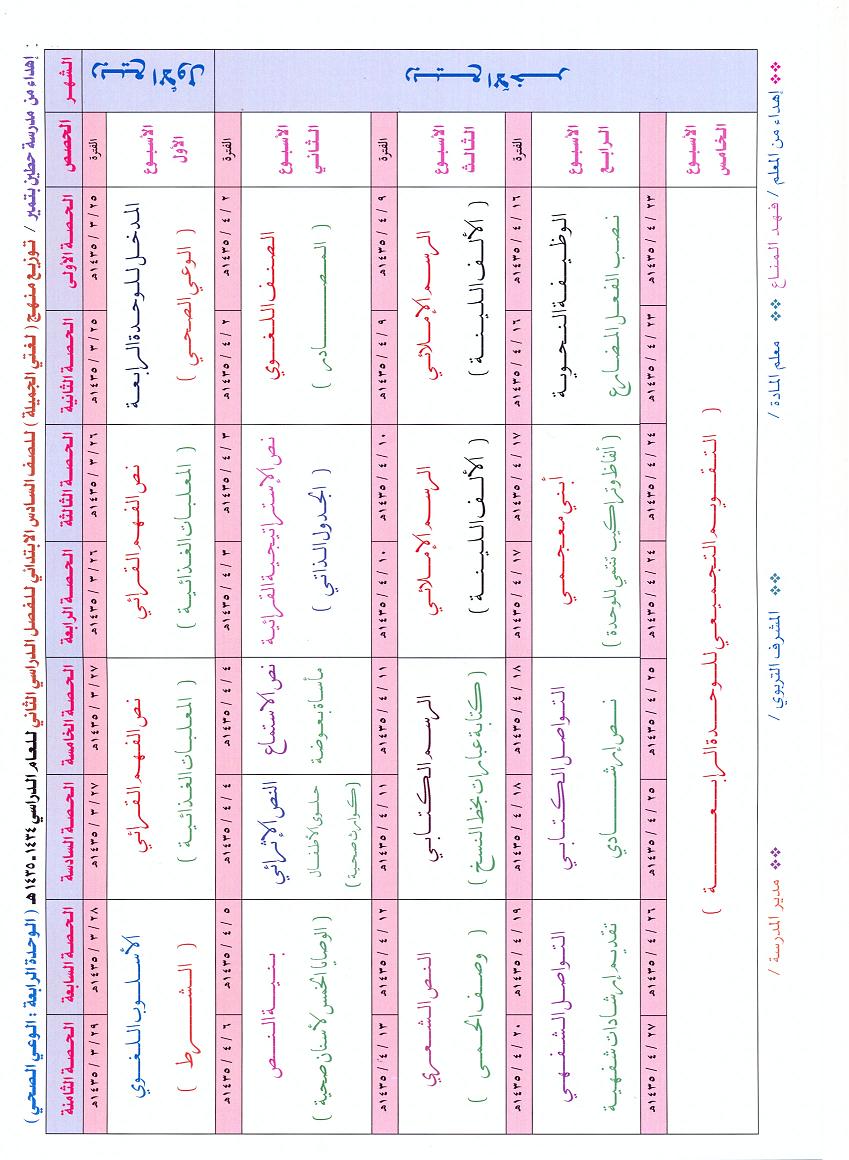 إهداء من مدرسة حطين بتمير / توزيع منهج ( لغتي الجميلة ) للصف السادس الابتدائي للفصل الدراسي الثاني للعام الدراسي ١٤٣٤ـ ١٤٣٥هـ ( الوحدة الرابعة : الوعي الصحي )
الشهر
ربيع الأول
ربيع الآخر
الحصص
الحصة الأولى
الحصة الثانية
الحصة الثالثة
الحصة الرابعة
الحصة الخامسة
الحصة السادسة
الحصة السابعة
الحصة الثامنة
الفترة
٢٥ / ٣ / ١٤٣٥هـ
٢٥ / ٣ / ١٤٣٥هـ
٢٦ / ٣ / ١٤٣٥هـ
٢٦ / ٣ / ١٤٣٥هـ
٢٧ / ٣ / ١٤٣٥هـ
٢٧ / ٣ / ١٤٣٥هـ
٢٨ / ٣ / ١٤٣٥هـ
٢٩ / ٣ / ١٤٣٥هـ
الأسبوع الأول
المدخل للوحدة الرابعة
( الوعي الصحي )
نص الفهم القرائي
( المعلبات الغذائية )
نص الفهم القرائي
( المعلبات الغذائية )
الأسلوب اللغوي
( الشرط )
الفترة
٢ / ٤ / ١٤٣٥هـ
٢ / ٤ / ١٤٣٥هـ
٣ / ٤ / ١٤٣٥هـ
٣ / ٤ / ١٤٣٥هـ
٤ / ٤ / ١٤٣٥هـ
٤ / ٤ / ١٤٣٥هـ
٥ / ٤ / ١٤٣٥هـ
٦ / ٤ / ١٤٣٥هـ
الأسبوع الثاني
الصنف اللغوي
( المصادر )
نص الإستراتيجية القرائية
( الجدول الذاتي )
نص الاستماع
مأساة بعوضة
النص الإثرائي
حلوى الأطفال
( كوارث صحية )
بنية النص
( الوصايا الخمس لأسنان صحية )
الفترة
٩ / ٤ / ١٤٣٥هـ
٩ / ٤ / ١٤٣٥هـ
١٠ / ٤ / ١٤٣٥هـ
١٠ / ٤ / ١٤٣٥هـ
١١ / ٤ / ١٤٣٥هـ
١١ / ٤ / ١٤٣٥هـ
١٢ / ٤ / ١٤٣٥هـ
١٣ / ٤ / ١٤٣٥هـ
الأسبوع الثالث
الرسم الإملائي
( الألف اللينة )
الرسم الإملائي
( الألف اللينة )
الرسم الكتابي
( كتابة عبارات بخط النسخ )
النص الشعري
( وصف الحمى )
الفترة
١٦ / ٤ / ١٤٣٥هـ
١٦ / ٤ / ١٤٣٥هـ
١٧ / ٤ / ١٤٣٥هـ
١٧ / ٤ / ١٤٣٥هـ
١٨ / ٤ / ١٤٣٥هـ
١٨ / ٤ / ١٤٣٥هـ
١٩ / ٤ / ١٤٣٥هـ
٢٠ / ٤ / ١٤٣٥هـ
الأسبوع الرابع
الوظيفة النحوية
نصب الفعل المضارع
أبني معجمي
( ألفاظ وتراكيب تنتمي للوحدة )
التواصل الكتابي
نص إرشادي
التواصل الشفهي
تقديم إرشادات شفهية
٢٣ / ٤ / ١٤٣٥هـ
٢٣ / ٤ / ١٤٣٥هـ
٢٤ / ٤ / ١٤٣٥هـ
٢٤ / ٤ / ١٤٣٥هـ
٢٥ / ٤ / ١٤٣٥هـ
٢٥ / ٤ / ١٤٣٥هـ
٢٦ / ٤ / ١٤٣٥هـ
٢٧ / ٤ / ١٤٣٥هـ
الأسبوع الخامس
( التقويم التجميعي للوحدة الرابعة )
إهداء من المعلم / فهد المناع
معلم المادة /
المشرف التربوي /
مدير المدرسة /